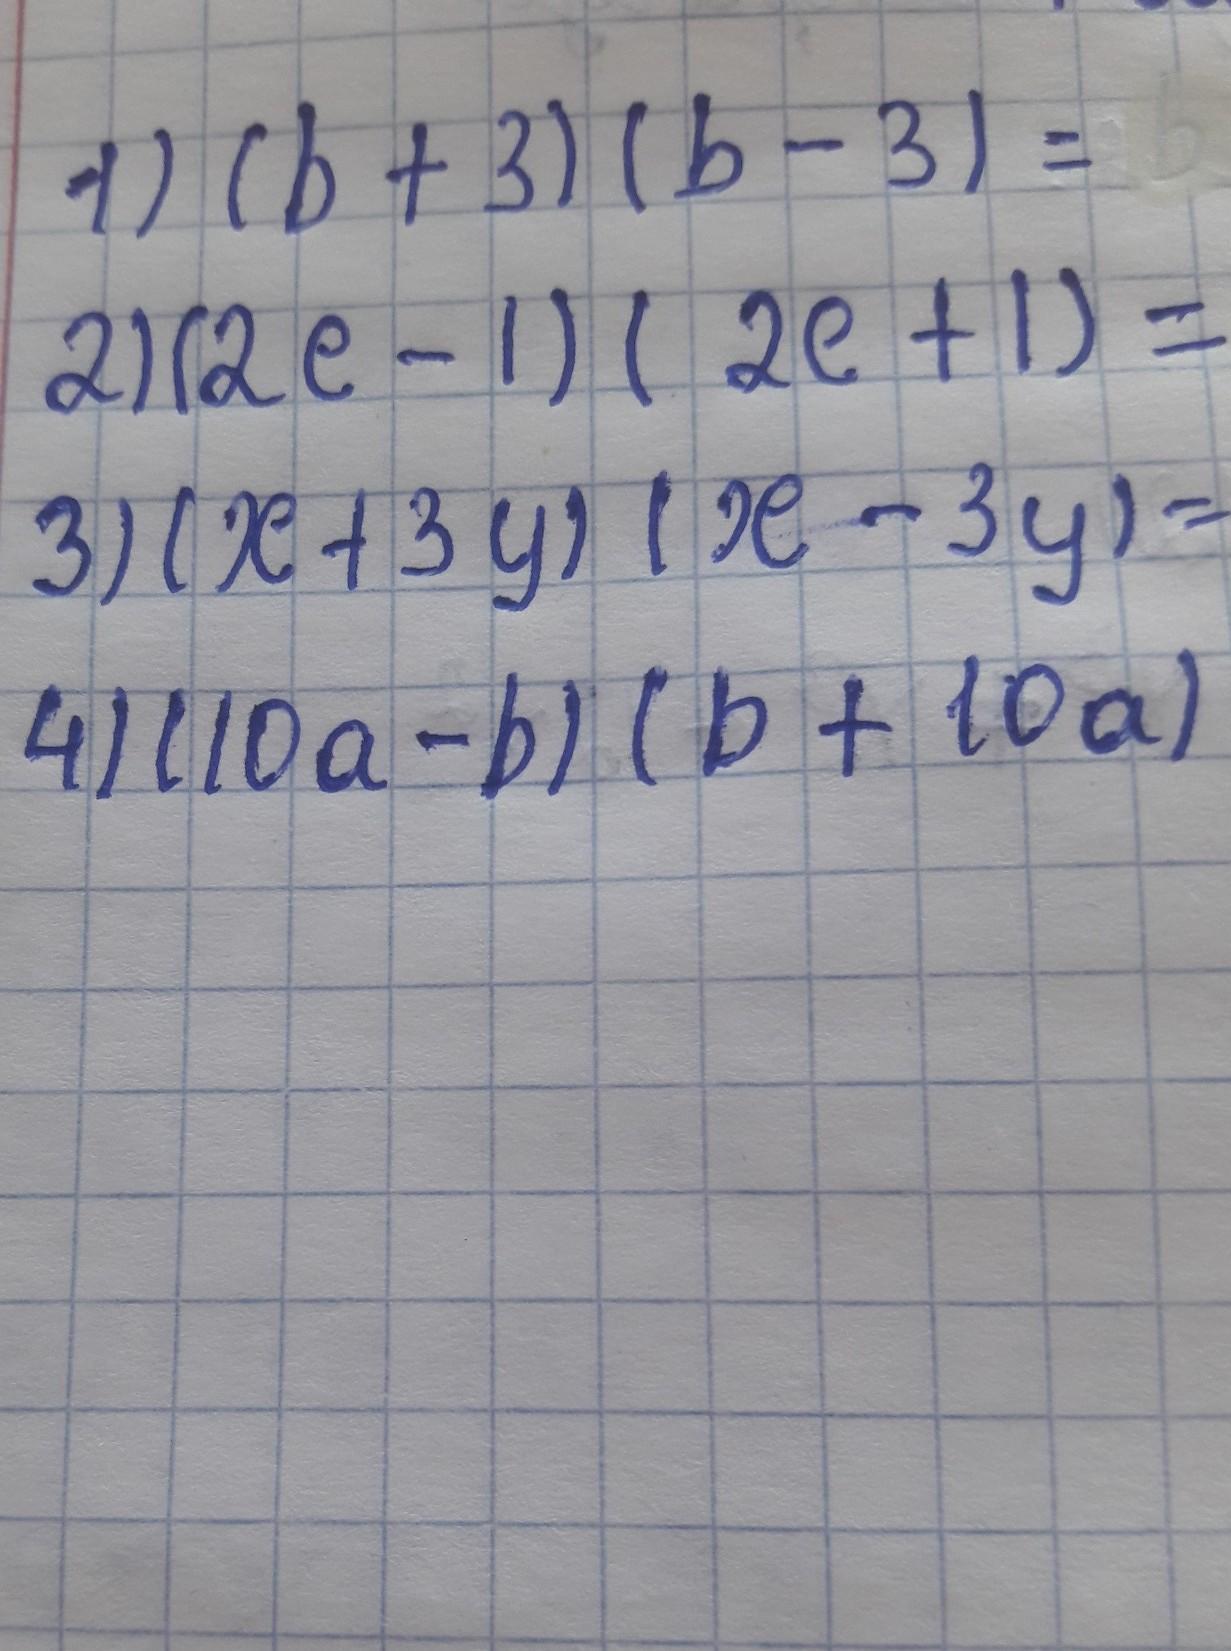 1) (b + 3) (b - 3) =
2) (2e - 1) ( 2e + 1) =
3) (x + 3y) (x - 3y) =
4) (10a - b) (b + 10a)